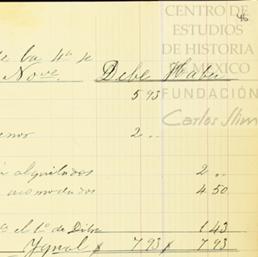 CENTRO DE
ESTUDIOS
DE HISTORIA
DE MÉXICO
FUNDACIÓN
Carlos Slim
46
de la 4ª se
Nove. Debe Haber
5 93
2 "
alquilados 2 "
acomodados 4 50
el 1º de Dibre 1 43
Ygual $ 7 93 $ 7 93